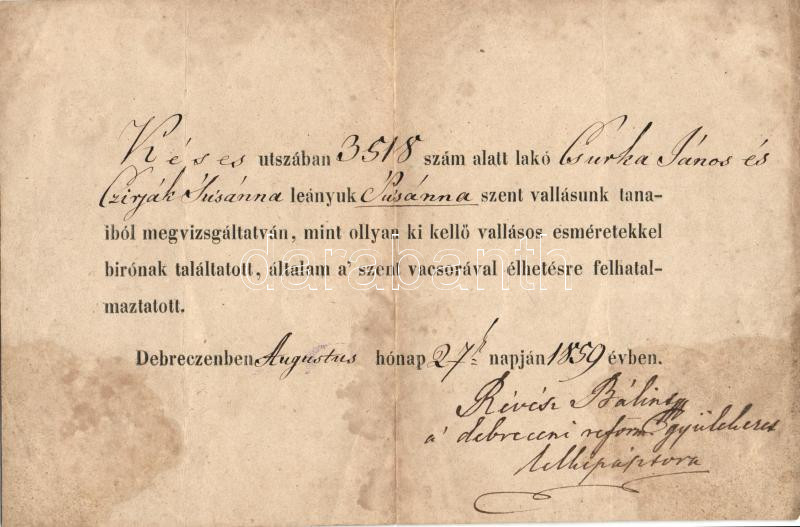 Késes utszában 3518 szám alatt lakó Csurka János és
Czirják Susánna leányuk Susánna szent vallásunk tana-
iból megvizsgáltatván, mint ollyan ki kellő vallásos esméretekkel
birónak találtatott, általam a' szent vacsorával élhetésre felhatal-
maztatott.
Debreczenben Augustus hónap 27k napján 1859 évben.
Révész Bálint
a' debreceni reform gyülekezet
lelkipásztora
darabanth